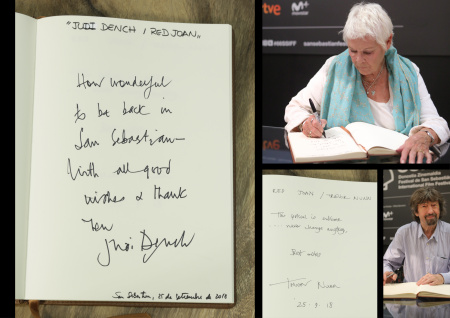 "JUDI DENCH / RED JOAN"
How wonderful
to be back in
San Sebastian
With all good
wishes & thank
you
Judi Dench
San Sebastian, 25 de setiembre de 2018
rtve
M+
RED JOAN / TREVOR NUNN
This festival is
never change anything.
Best wishes
Trevor Nunn
25-9-18
Donostia Zinemaldia
Festival de San Sebastián
International Film Festival